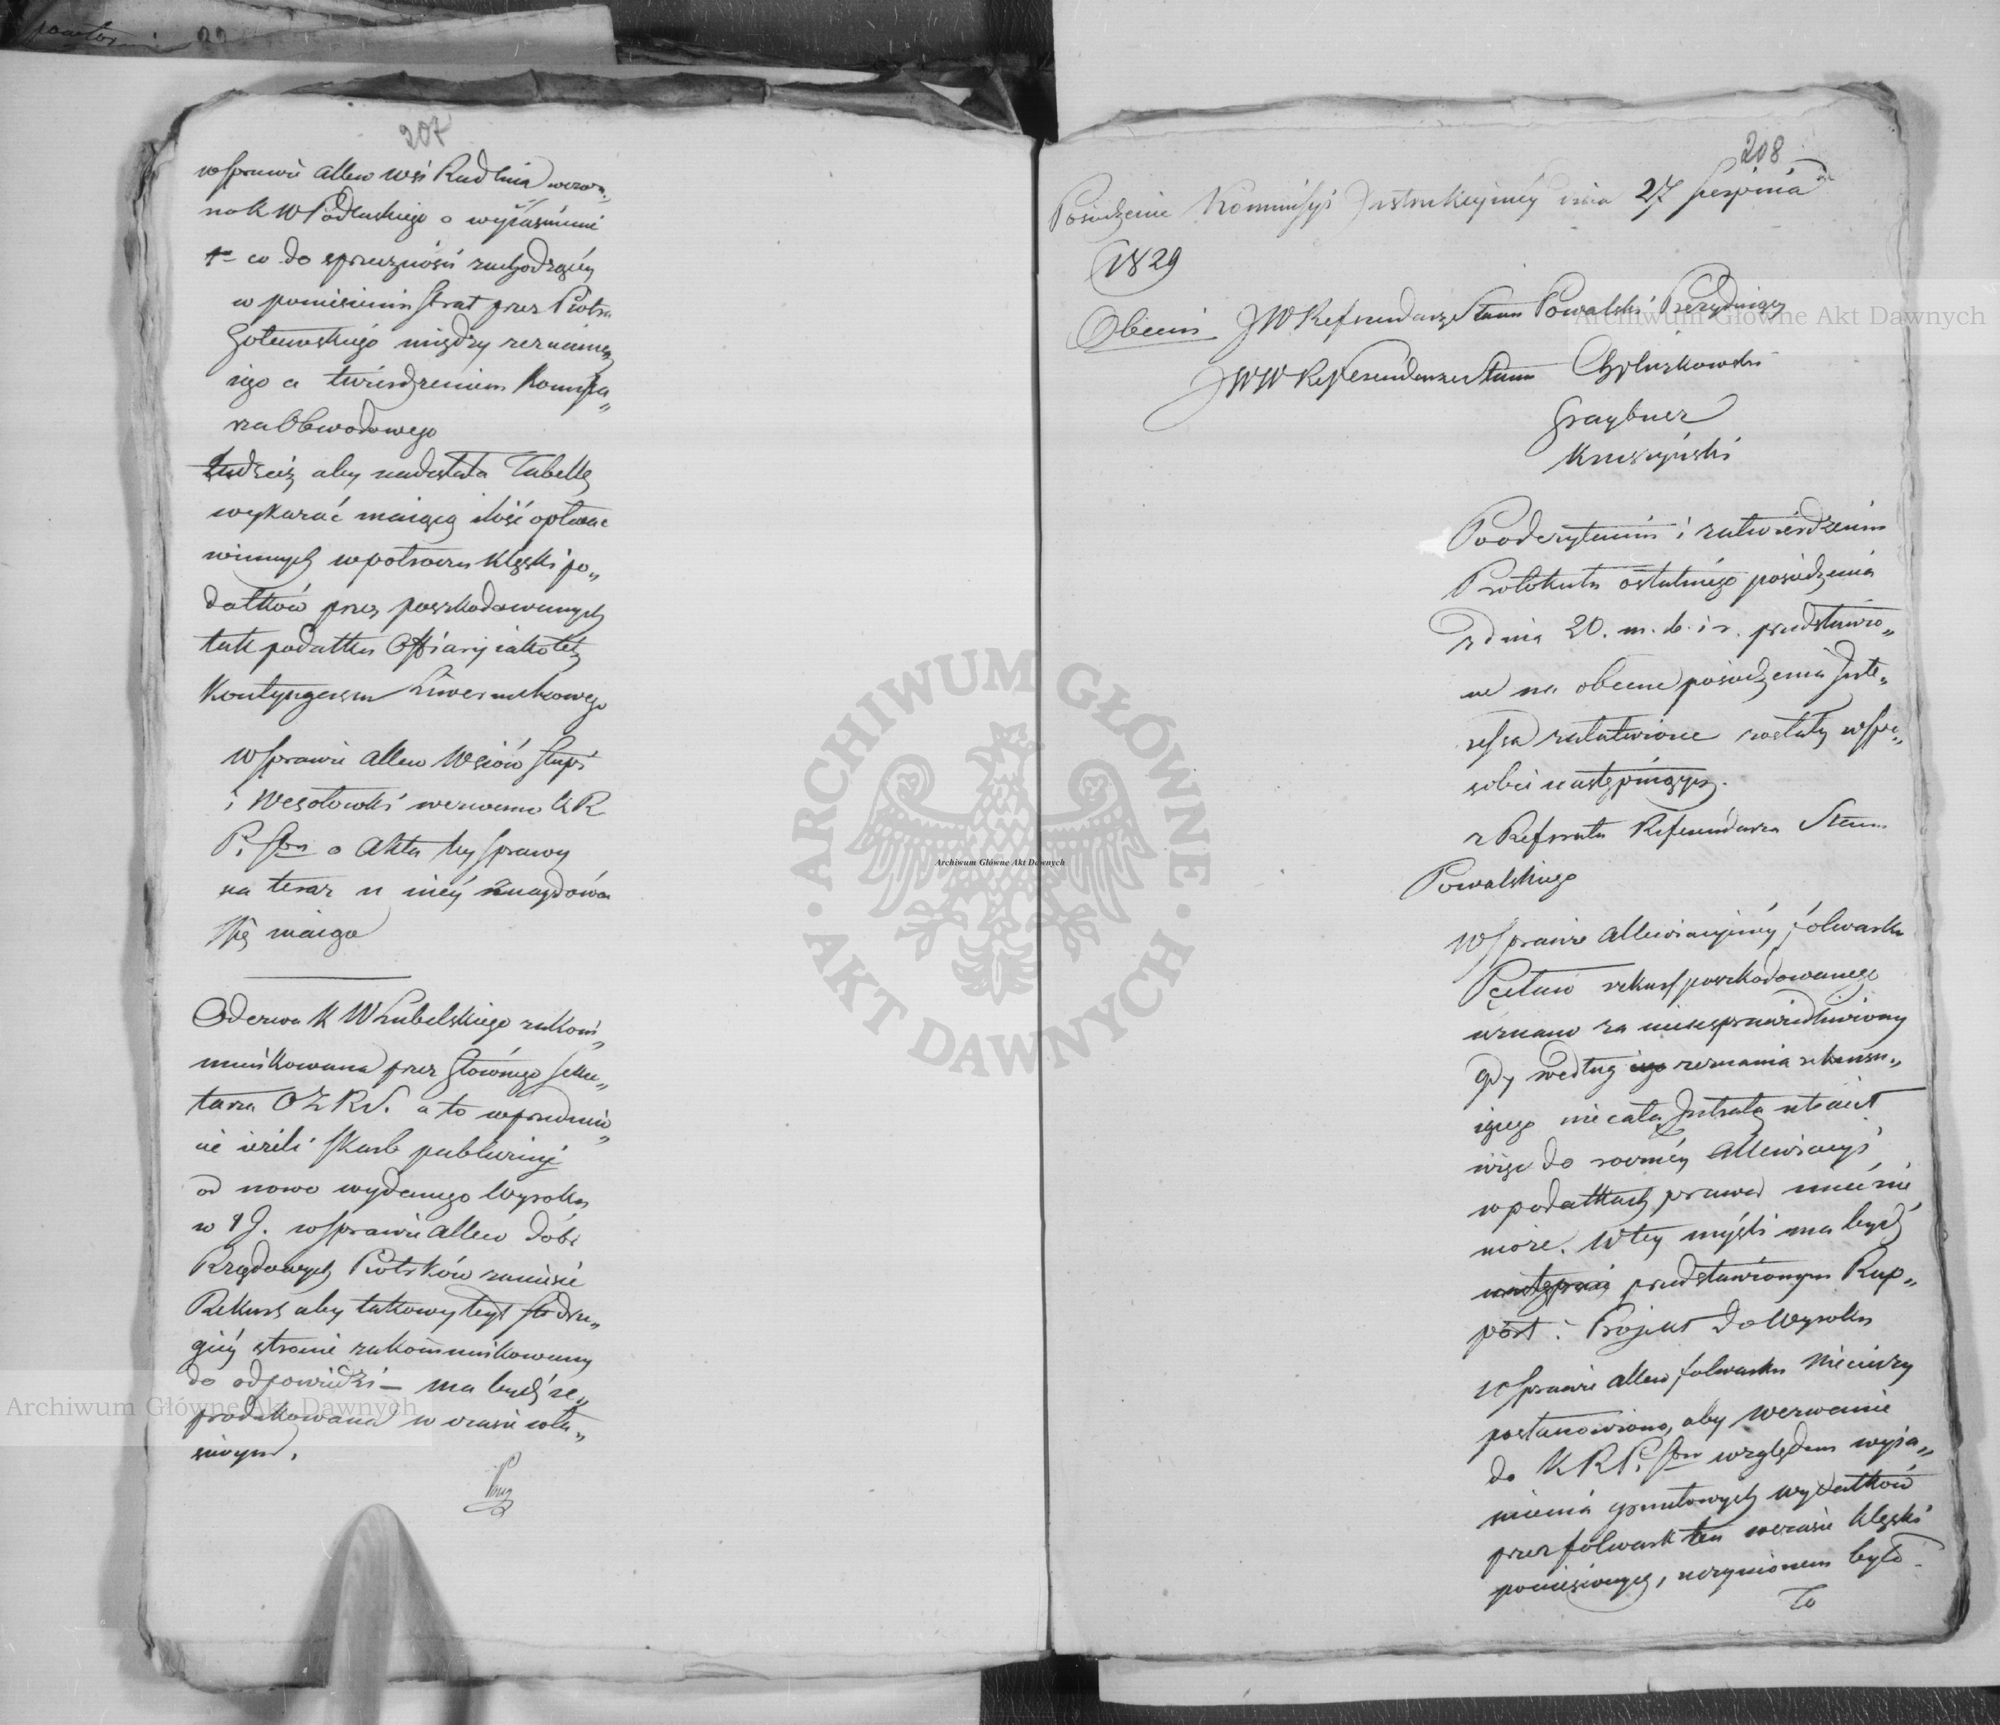 207
w sprawie allew wsi Rudnia wezwa„
no K W Podlaskiego o wyiaśnienie
1o co do sprzeczności zachodzącey
w poniesieniu strat przez Piotra
Gołuowskiego między zeznaniem
iego a twierdzeniem Kommissa„
rza Obwodowego
tudzież aby nadesłała Tabellę
wykazać maiącą ilość opłacać
winnych w potrwaniu klęski po„
datków przez poszkodowanych
tak podatku Ofiary iako też
Kontyngensu Liwerunkowego
w sprawie allew Wsiów Słupi
i Wesołówki wezwano K R
P. i Sbu o Akta tey sprawy
na teraz u niey znaydować
się maiące
Odezwa K W Lubelskiego zakom„
munikowana przez Głównego Sekre„
tarza O Z R S. a to w przedmio„
cie ieżeli Skarb publiczny
od nowo wydanego Wyroku
w 1 J. w sprawie allew dóbr
Rządowych Piotrków zaniesie
Rekurs aby takowy był dru„
giey stronie zakommunikowany
do odpowiedzi — ma bydź re„
produkowana w czasie wła„
ściwym.
208
Posiedzenie Kommissyi Instrukcyiney dnia 27 Sierpnia
1829
Obecni JW Referendarz Stanu Kowalski Prezyduiący
JWW Referendarze Stanu
Graybner
Kruszyński
Po odczytaniu i zatwierdzeniu
Protokułu ostatniego posiedzenia
z dnia 20. m. b. i r. przedstawio„
ne na obecne posiedzenie Inte„
ressa załatwione zostały w spo„
sobie następuiącym.
z Referatu Referendarza Stanu
Kowalskiego
W sprawie allewiacyiney folwarku
rekurs poszkodowanego
uznano za nieusprawiedliwiony
gdy według iego zeznania rekursu„
iącego nie całą Intratę utracił
więc do roczney Allewiacyi
w podatkach prawa mieć nie
może. W tey myśli ma bydź
następnie przedstawionym Rap„
port i Projekt do Wyroku
w sprawie allew folwarku Niecieczy
postanowiono, aby wezwanie
do K R P. i Sbu względem wyia„
śnienia gruntowych wydatków
przez folwark ten w czasie klęski
poniesionych, uczynionem było
To
Archiwum Główne Akt Dawnych
Archiwum Główne Akt Dawnych
Archiwum Główne Akt Dawnych
ARCHIWUM GŁÓWNE
AKT DAWNYCH